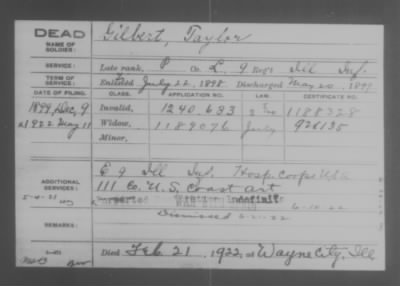 DEAD
NAME OF SOLDIER:
Gilbert, Taylor
SERVICE:
Late rank, P Co. L, 9 Reg't Ill Inf.
TERM OF SERVICE:
Enlisted July 22, 1898 Discharged May 20, 1899
DATE OF FILING. CLASS. APPLICATION NO. LAW. CERTIFICATE NO.
1899, Dec, 9 Invalid, 1240.633 1188328
1922 May 11 Widow, 1189076 July 926135
Minor,
ADDITIONAL SERVICES:
E 9 Ill Inf. Hosp. Corps USA
111 Co. U.S. Coast art
5-4-21
Dismissed 6-21-22
REMARKS:
Died Feb. 21, 1922, at Wayne City, Ill